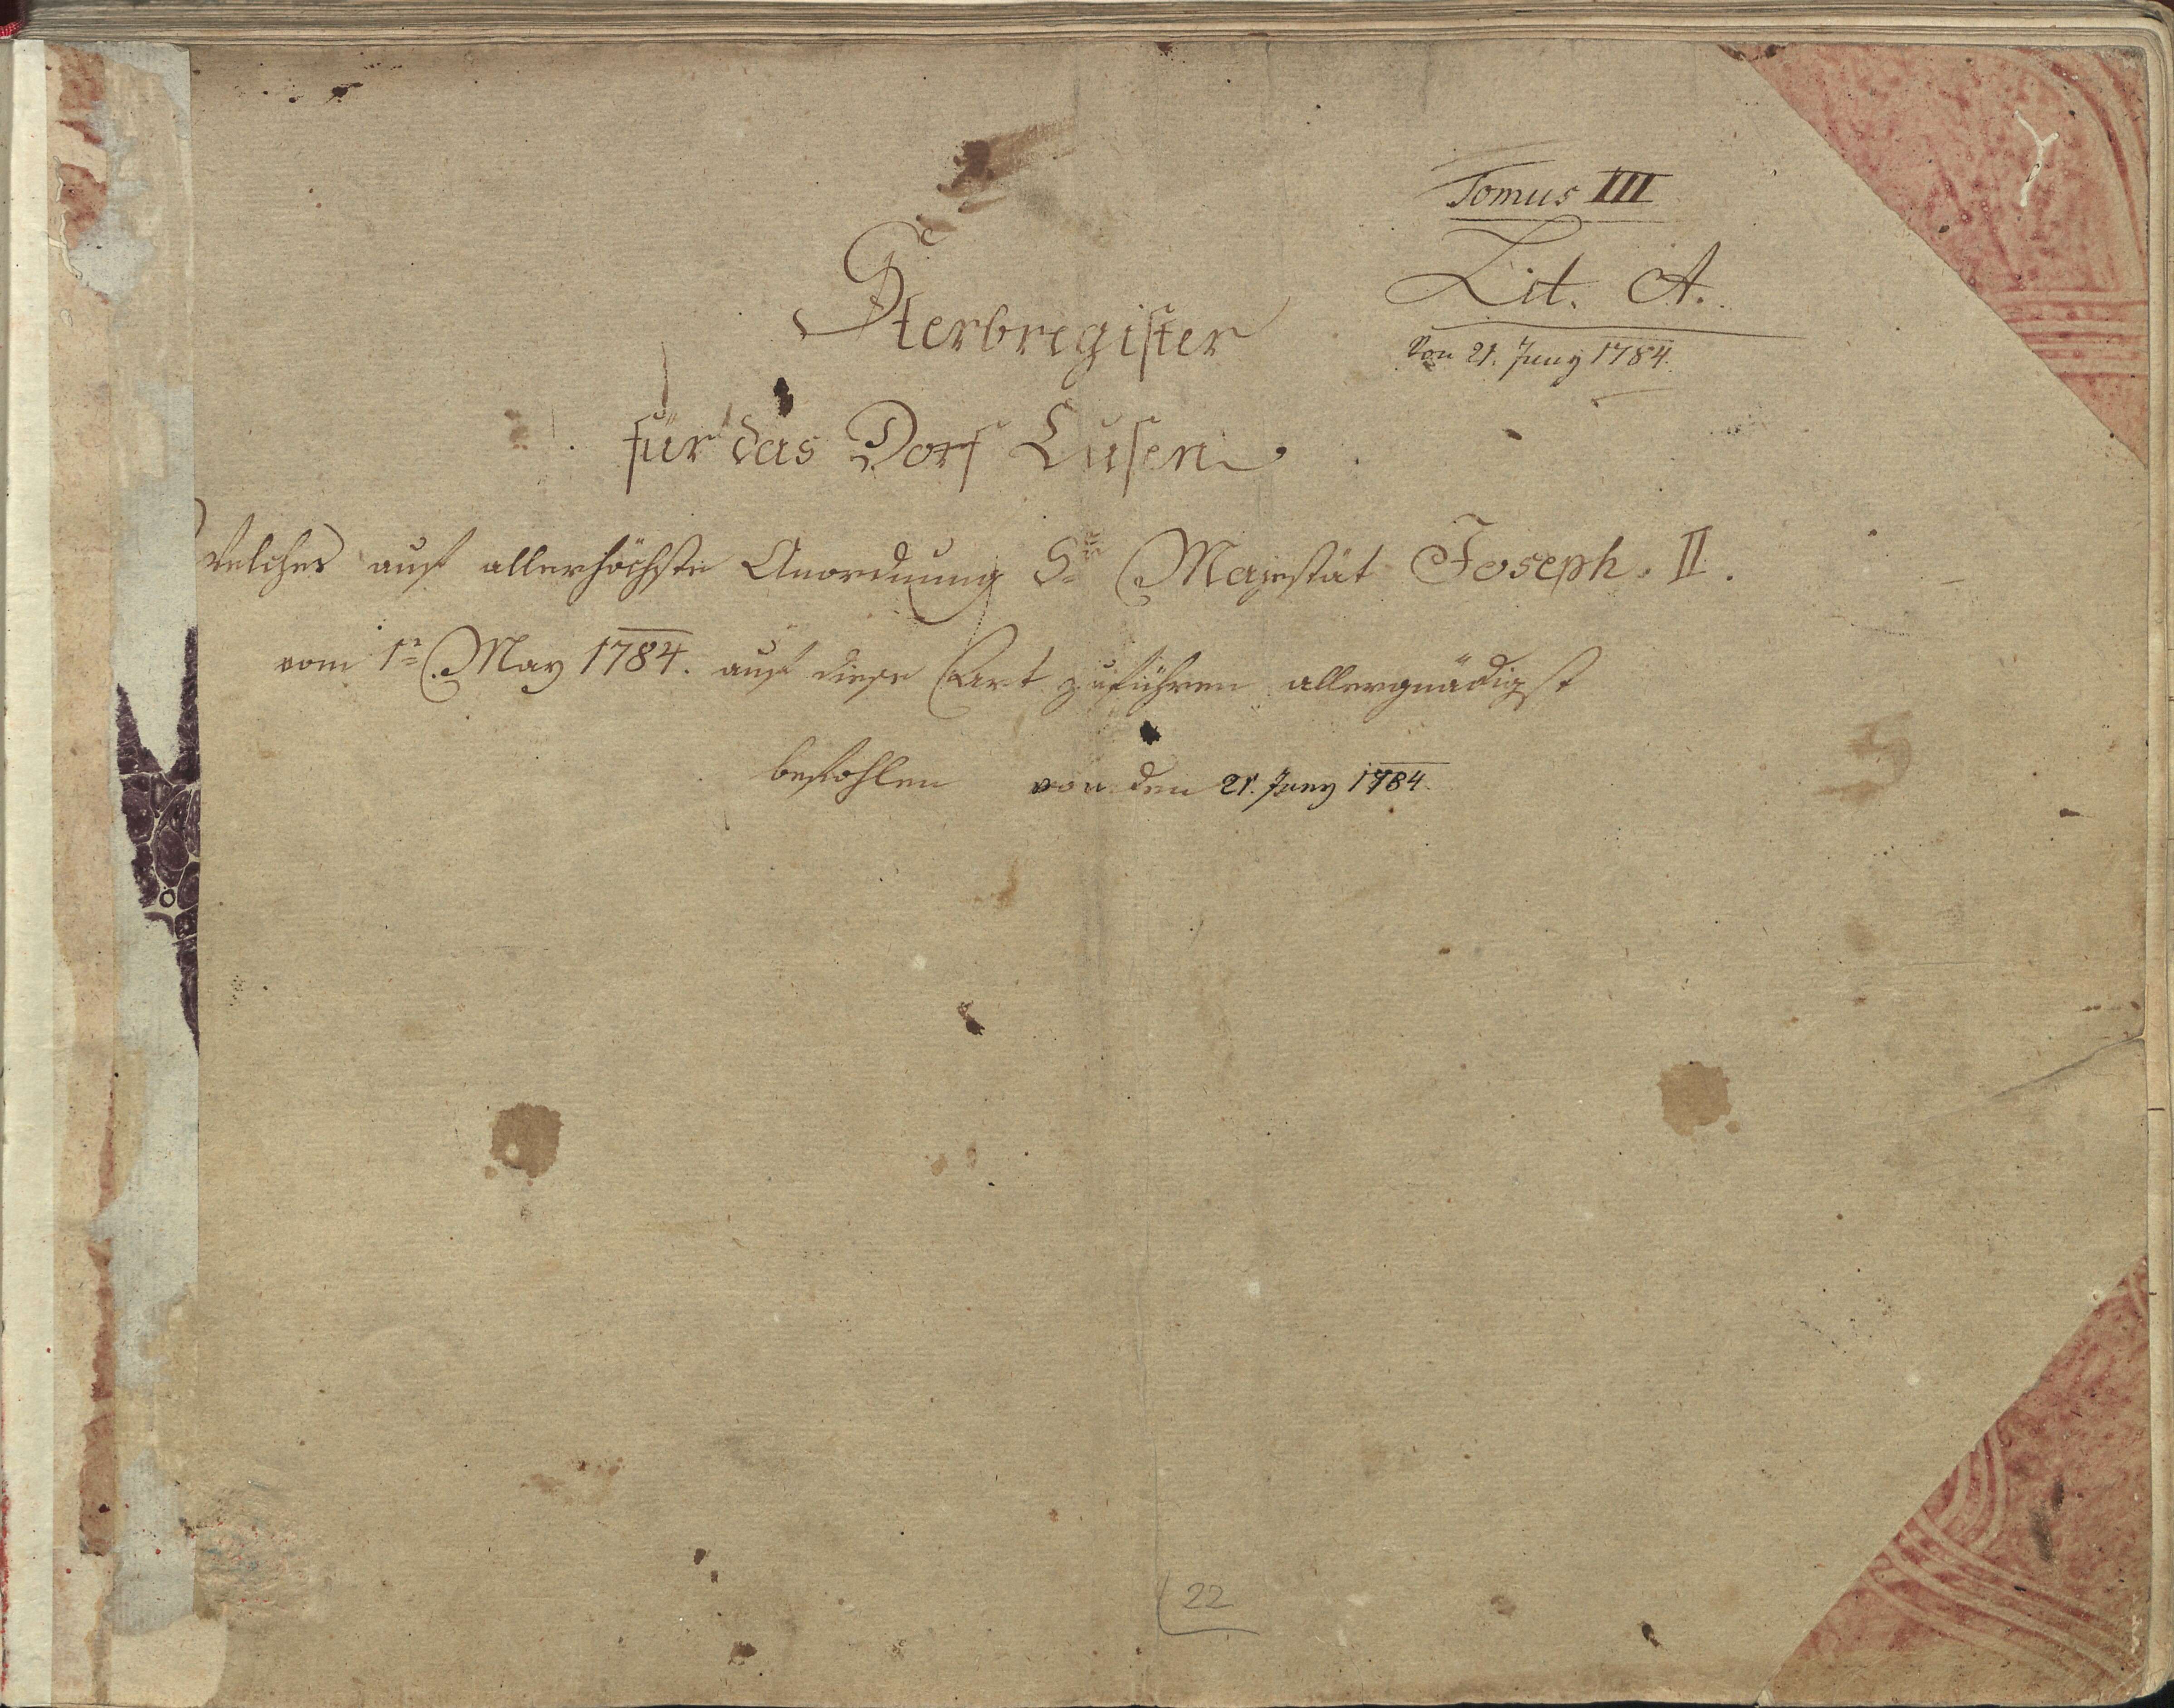 Tomus III
Lit. A.
Von 21. Juny 1784.
Sterbregister
für das Dorf Lusen
Welches auf allerhöchste Anordnung Sr Majestät Joseph. II.
vom 1n May 1784. auf diese Art zuführen allergnädigst
befohlen von den 21. Juny 1784.
22